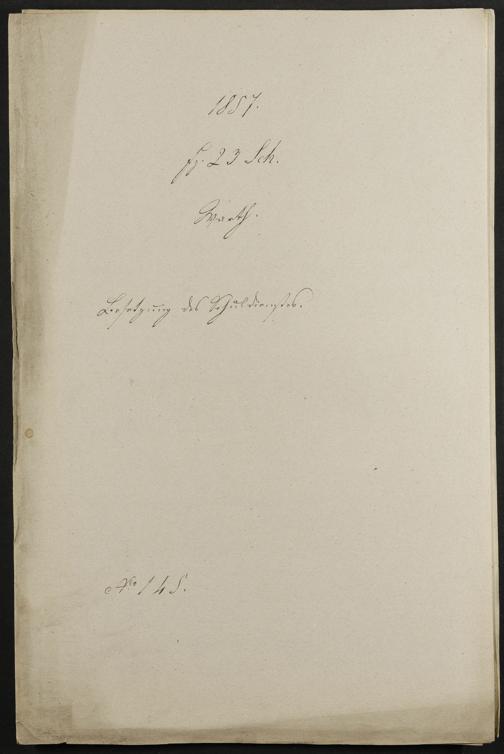 1857.
ff. 23 Sch.
Warth.
Besetzung des Schuldienstes.
No. 145.